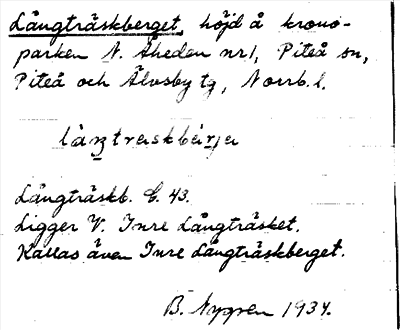 Långträskberget, höjd å krono-
parken N. Åheden nr 1, Piteå sn,
Piteå och Älvsby tg, Norrb. l.
Långträskb. E. 43.
Ligger V. Inre Långträsket.
Kallas även Inre Långträskberget.
B. Nygren 1934.